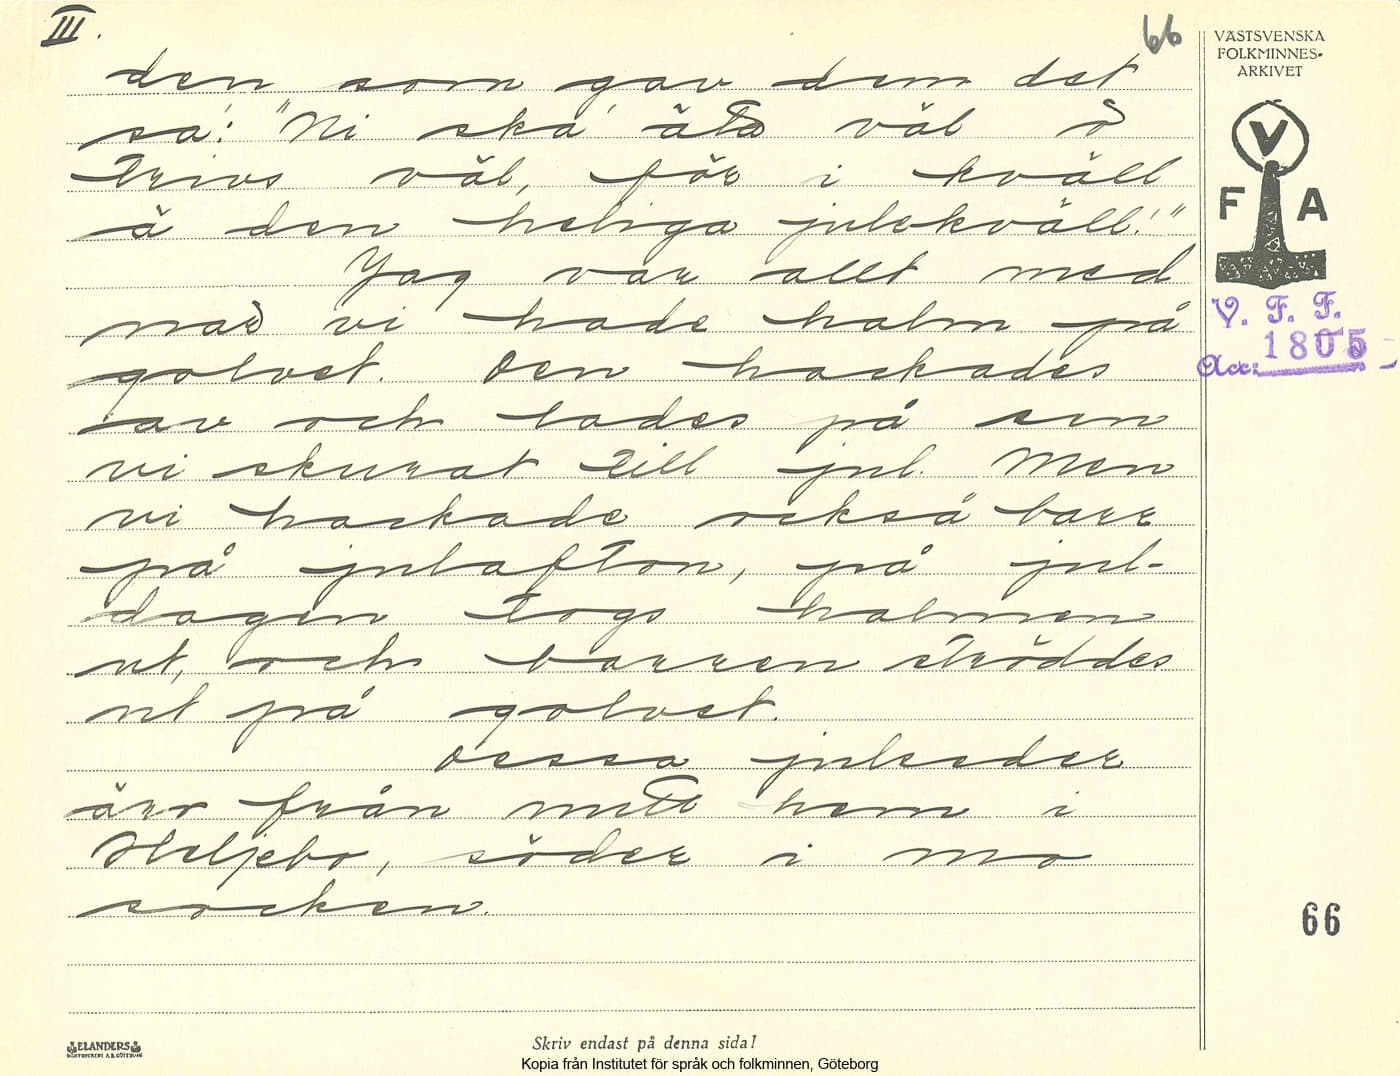 III.
66
VÄSTSVENSKA
FOLKMINNES-
ARKIVET
V
F A
V. F. F.
Acc: 1805
den som gav dem det
sa: "Ni ska äta väl å
trivs väl, för i kväll
ä den heliga julekväll!"
Jag var allt med
när vi hade halm på
golvet. Den hackades
av och lades på sen
vi skurat till jul. Men
vi hackade också barr
på julafton, på jul-
dagen togs halmen
ut, och barren ströddes
ut på golvet.
Dessa julseder
äro från mitt hem i
Heljebo, söder i Mo
socken.
66
ELANDERS
BOKTRYCKERI A.B. GÖTEBORG
Skriv endast på denna sida!
Kopia från Institutet för språk och folkminnen, Göteborg